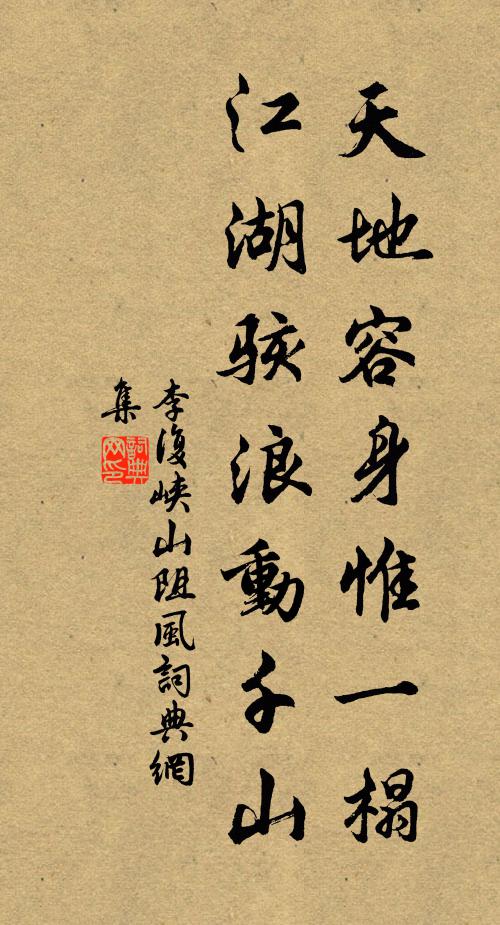 天地容身惟一榻
江湖駭浪動千山
李復峽山阻風詞典網
集
詞典網印